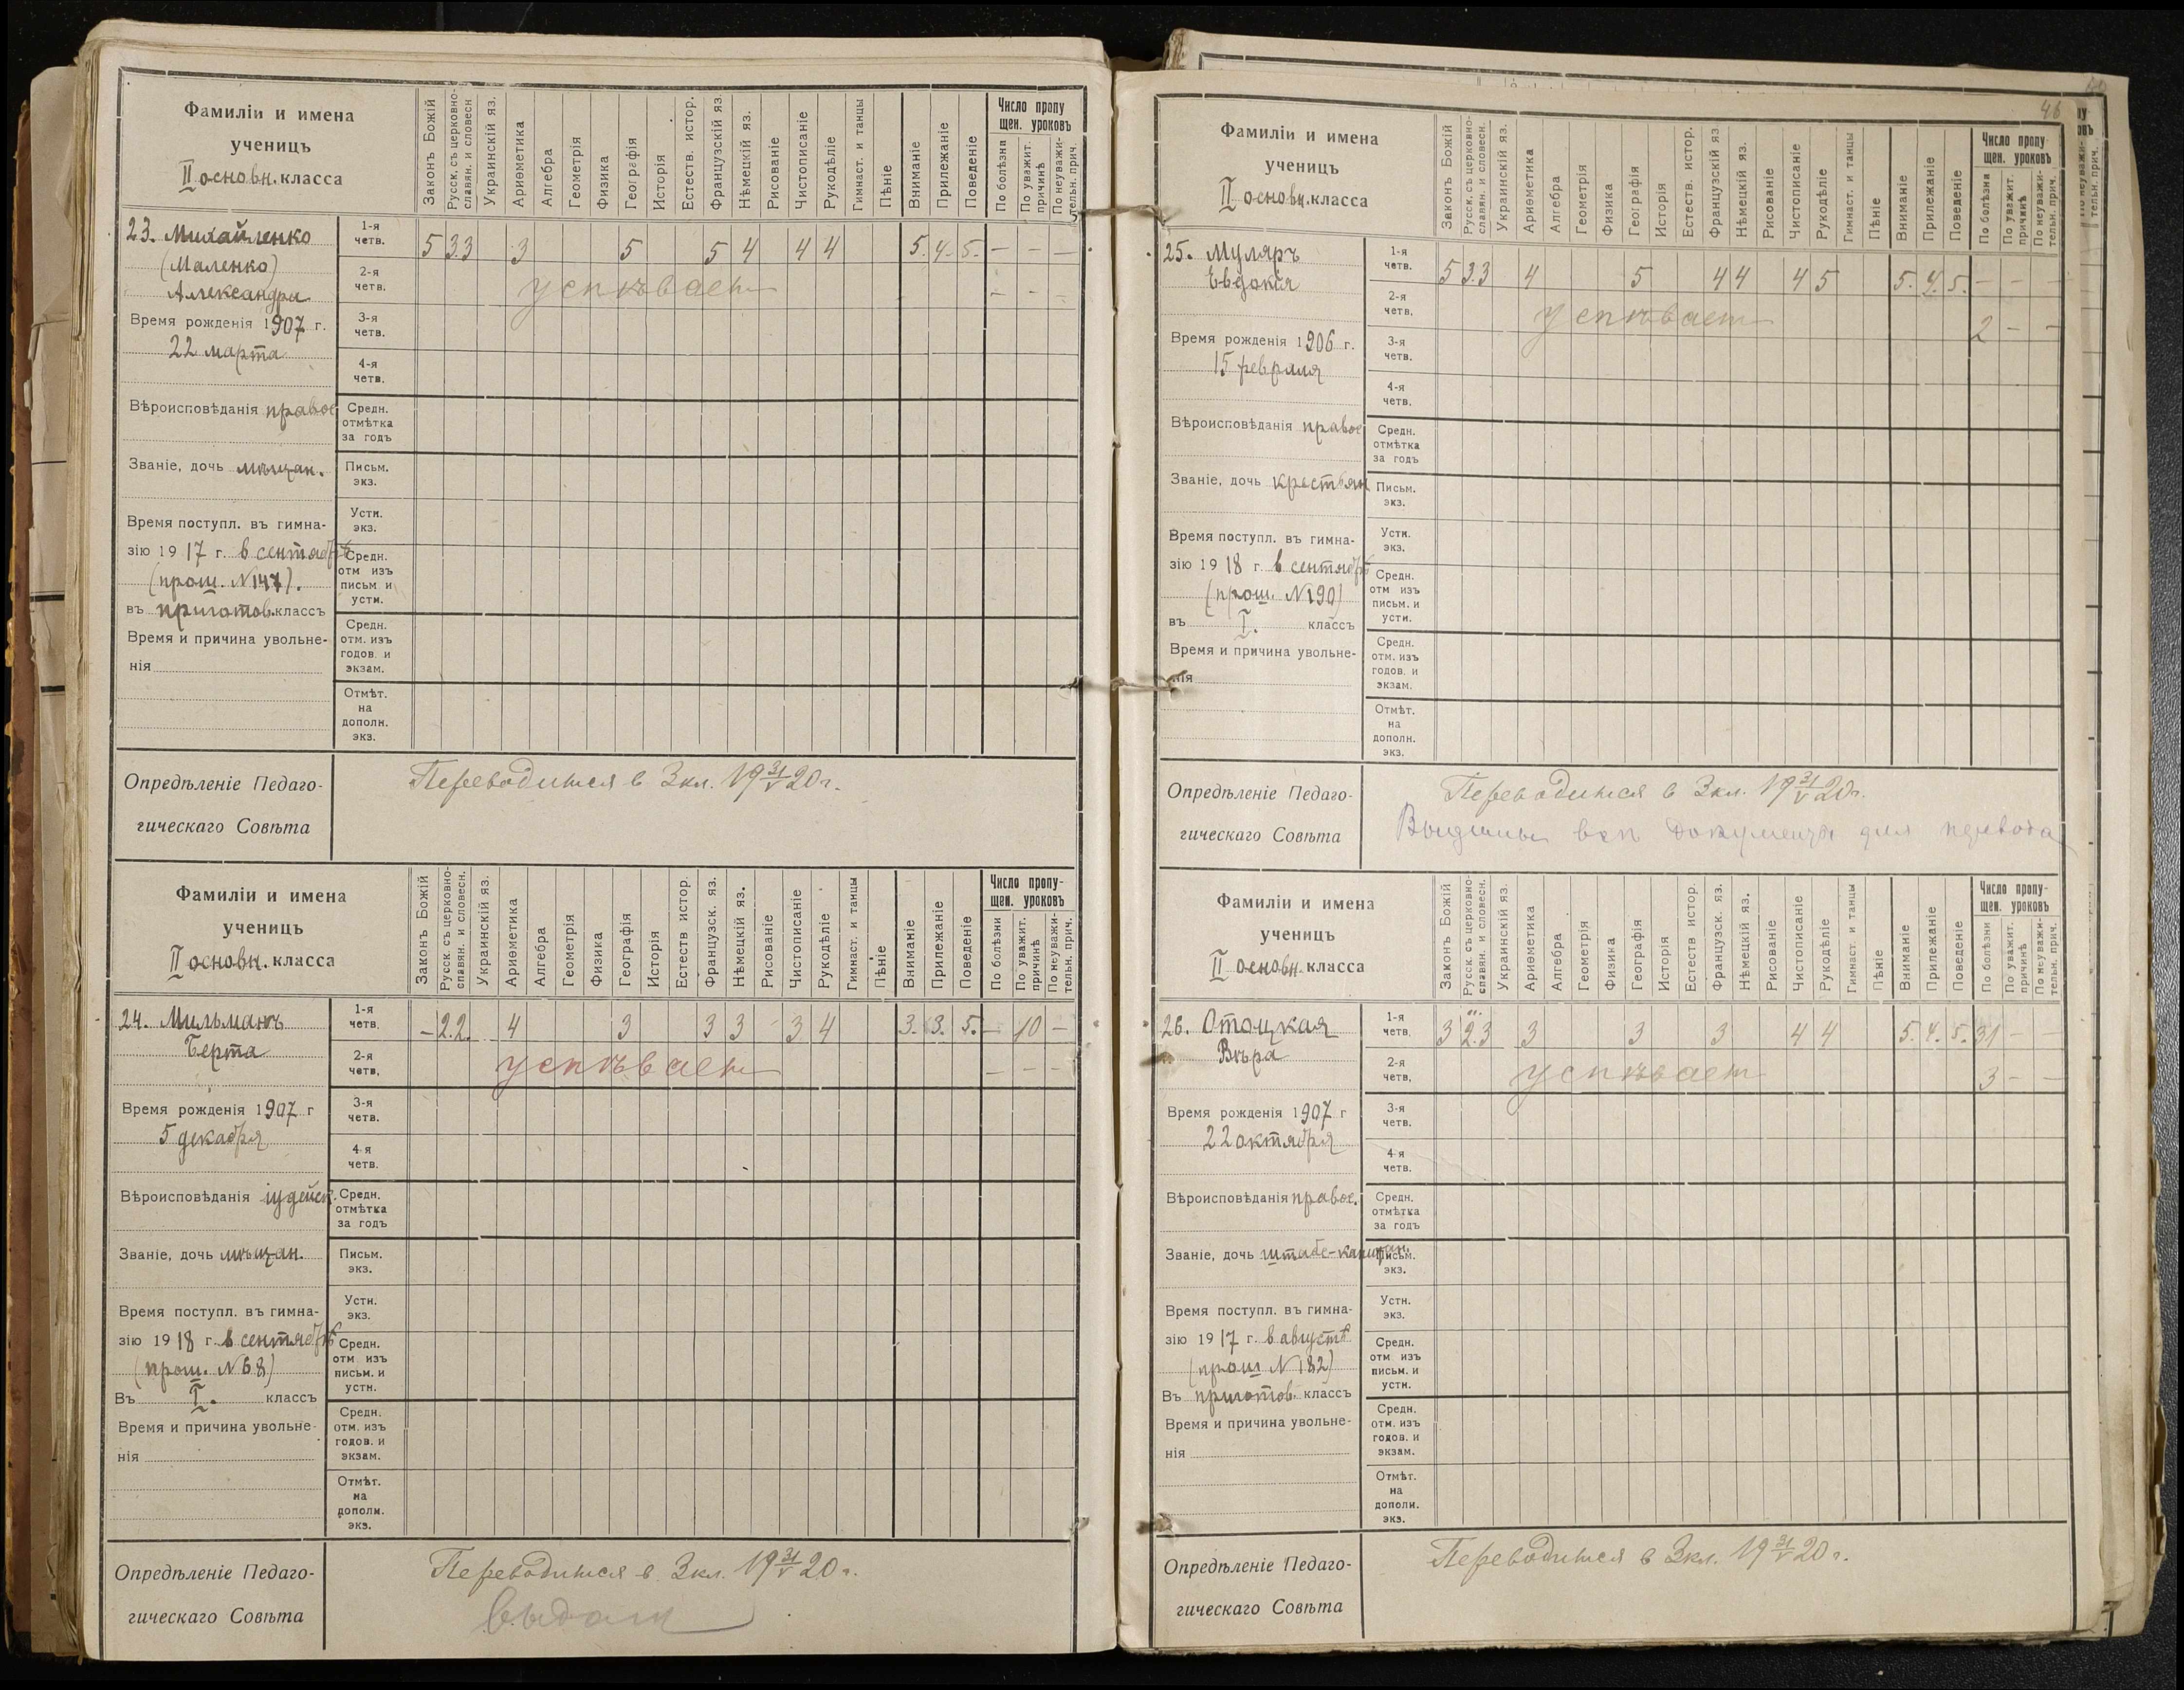 Фамиліи и имена
ученицъ
II основн. класса
Законъ Божій
Русск. съ церковно-
славян. и словесн
Украинскій яз.
Ариѳметика
Алгебра
Геометрія
Физика
Географія
Исторія
Естеств. истор.
Французскій яз.
Нѣмецкій яз.
Рисованіе
Чистописаніе
Рукодѣліе
Гимнаст. и танцы
Пѣніе
Вниманіе
Прилежаніе
Поведеніе
Число пропу
щен. уроковъ
По болѣзна
По уважит.
причинѣ
По неуважи-
тельн. прич.
23. Михайленко
(Маленко)
Александра
Время рожденія 1907 г.
22 марта
Вѣроисповѣданія правос
Званіе, дочь мѣщан.
Время поступл. въ гимна-
зію 1917 г. в сентябрѣ
(прош. N147).
въ приготов. классъ
Время и причина увольне-
нія
1-я
четв.
5 3 3 3 5 5 4 4 4 5. 4. 5. – – –
2-я
четв.
успѣвает – – –
3-я
четв.
4-я
четв.
Средн.
отмѣтка
за годъ
Письм.
экз.
Устн.
экз.
Средн.
отм изъ
письм. и
устн.
Средн.
отм. изъ
годов. и
экзам.
Отмѣт.
на
дополн.
экз.
Опредѣленіе Педаго-
гическаго Совѣта
Переводится в 3 кл. 19 31/V 20 г.
Фамиліи и имена
ученицъ
II основн. класса
Законъ Божій
Русск. съ церковно-
славян. и словесн.
Украинскій яз.
Ариѳметика
Алгебра
Геометрія
Физика
Географія
Исторія
Естеств истор.
Французск. яз.
Нѣмецкій яз.
Рисованіе
Чистописаніе
Рукодѣліе
Гимнаст. и танцы
Пѣніе
Вниманіе
Прилежаніе
Поведеніе
Число пропу-
щен. уроковъ
По болѣзни
По уважит.
причинѣ
По неуважи-
тельн. прич.
24. Мильманъ
Берта
Время рожденія 1907 г
5 декабря
Вѣроисповѣданія іудейск.
Званіе, дочь мѣщан.
Время поступл. въ гимна-
зію 1918 г. в сентябрѣ
(прош. N68)
Въ I. классъ
Время и причина увольне-
нія
1-я
четв.
– 2. 2. 4 3 3 3 3 4 3. 3. 5. – 10 –
2-я
четв,
успѣвает – – –
3-я
четв.
4-я
четв.
Средн.
отмѣтка
за годъ
Письм.
экз.
Устн.
экз.
Средн.
отм изъ
письм. и
устн.
Средн.
отм. изъ
годов. и
экзам.
Отмѣт.
на
дополн.
экз.
Опредѣленіе Педаго-
гическаго Совѣта
Переводится в 3 кл. 19 31/V 20 г.
46
Фамиліи и имена
ученицъ
II основн. класса
Законъ Божій
Русск. съ церковно-
славян. и словесн.
Украинскій яз.
Ариѳметика
Алгебра
Геометрія
Физика
Географія
Исторія
Естеств. истор.
Французскій яз
Нѣмецкій яз.
Рисованіе
Чистописаніе
Рукодѣліе
Гимнаст. и танцы
Пѣніе
Вниманіе
Прилежаніе
Поведеніе
Число пропу
щен. уроковъ
По болѣзна
По уважит.
причинѣ
По неуважи-
тельн. прич.
25. Муляръ
Евдокія
Время рожденія 1906 г.
15 февраля
Вѣроисповѣданія правос
Званіе, дочь крестьян
Время поступл. въ гимна-
зію 1918 г. в сентябрѣ
(прош. N190)
въ I. классъ
Время и причина увольне-
нія
1-я
четв.
5 3. 3 4 5 4 4 4 5 5. 4. 5. – – –
2-я
четв,
успѣвает 2 – –
3-я
четв.
4-я
четв.
Средн.
отмѣтка
за годъ
Письм.
экз.
Устн.
экз.
Средн.
отм изъ
письм. и
устн.
Средн.
отм. изъ
годов. и
экзам.
Отмѣт.
на
дополн.
экз.
Опредѣленіе Педаго-
гическаго Совѣта
Переводится в 3 кл. 19 31/V 20 г.
Выданы всѣ документы для перевода
Фамиліи и имена
ученицъ
II основн. класса
Законъ Божій
Русск. съ церковно-
славян. и словесн.
Украинскій яз.
Ариѳметика
Алгебра
Геометрія
Физика
Географія
Исторія
Естеств истор.
Французск. яз.
Нѣмецкій яз.
Рисованіе
Чистописаніе
Рукодѣліе
Гимнаст. и танцы
Пѣніе
Вниманіе
Прилежаніе
Поведеніе
Число пропу-
щен. уроковъ
По болѣзни
По уважит.
причинѣ
По неуважи-
тельн. прич.
26. Отоцкая
Вѣра
Время рожденія 1907 г
22 октября
Вѣроисповѣданія правос.
Званіе, дочь штабс-капитан.
Время поступл. въ гимна-
зію 1917 г. в августѣ
(прош N182)
Въ приготов. классъ
Время и причина увольне-
нія
1-я
четв.
3 2. 3 3 3 3 4 4 5. 4. 5. 31 – –
2-я
четв,
успѣвает 3 – –
3-я
четв.
4-я
четв.
Средн.
отмѣтка
за годъ
Письм.
экз.
Устн.
экз.
Средн.
отм изъ
письм. и
устн.
Средн.
отм. изъ
годов. и
экзам.
Отмѣт.
на
дополн.
экз.
Опредѣленіе Педаго-
гическаго Совѣта
Переводится в 3 кл. 19 31/V 20 г.